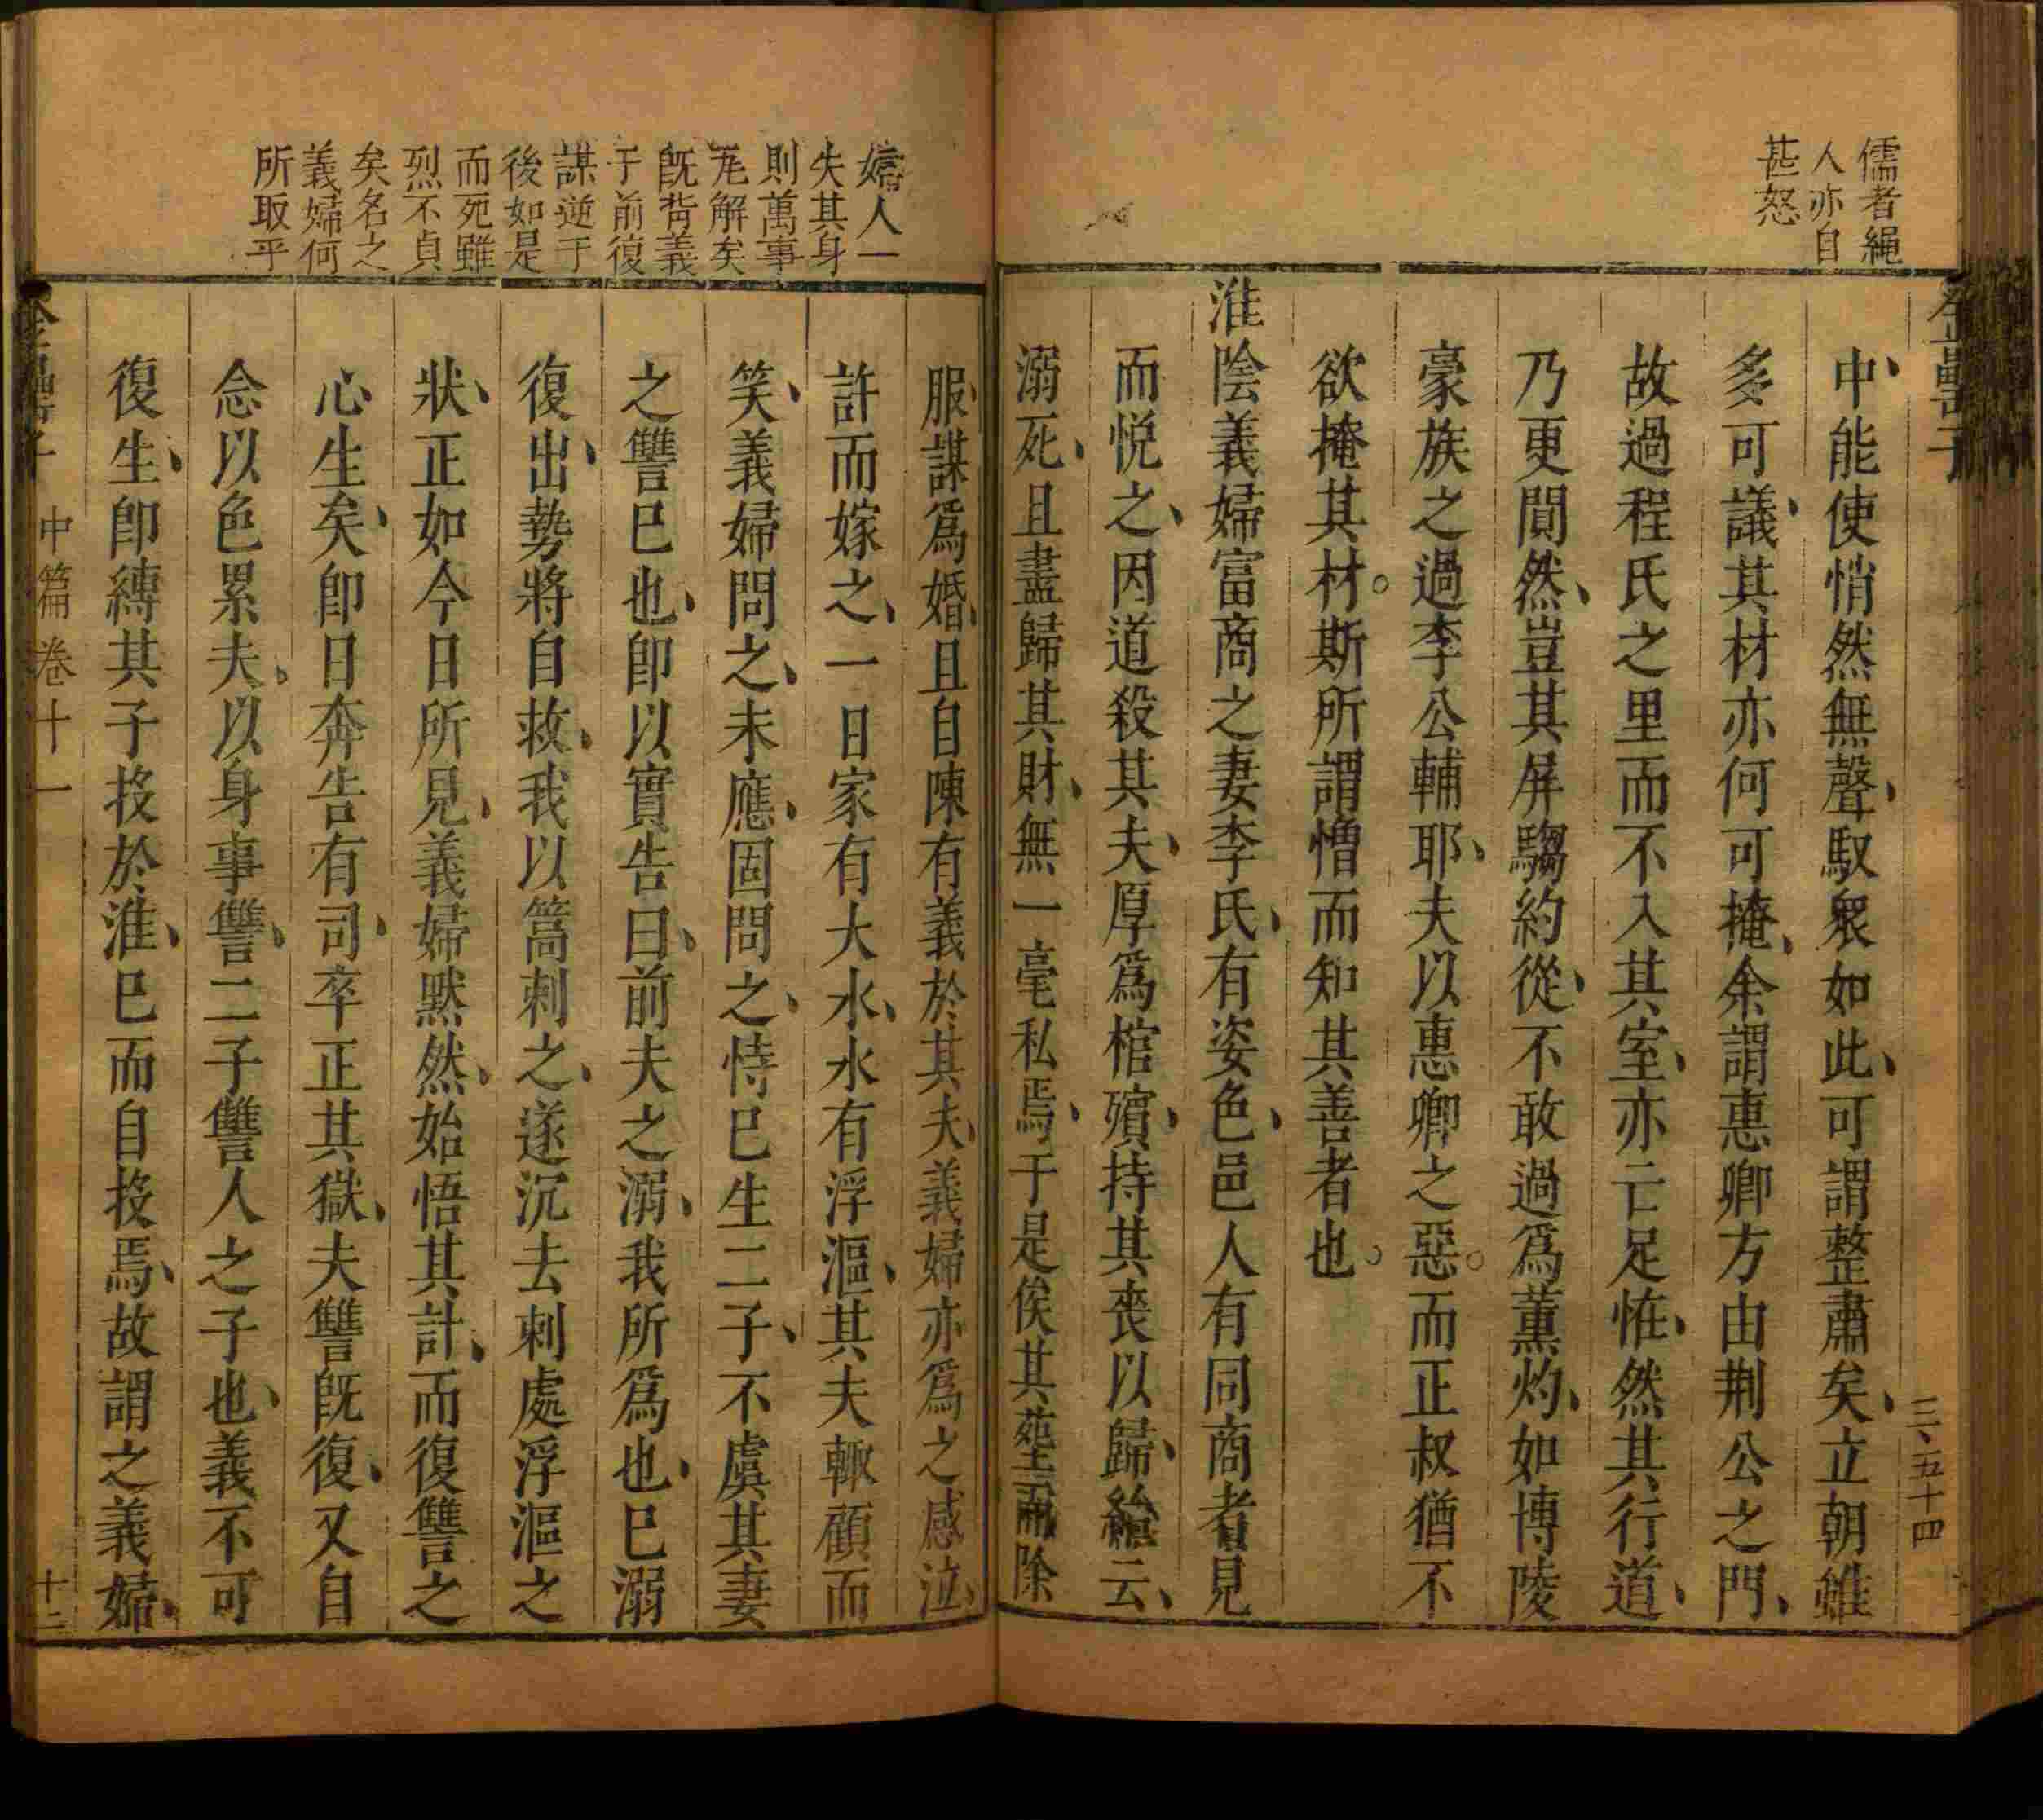 儒者繩
人亦自
甚怒
三、五十四
中、能使悄然無聲、馭衆如此、可謂整肅矣、立朝雖
多可議、其材亦何可掩、余謂惠卿方由荆公之門、
故過程氏之里而不入其室、亦亡足恠、然其行道、
乃更閴然、豈其屏騶約從、不敢過爲薰灼、如博陵
豪族之過李公輔耶、夫以惠卿之惡。而正叔猶不
欲掩其材。斯所謂憎而知其善者也。
淮陰義婦富商之妻李氏、有姿色、邑人有同商者見
而悦之、因道殺其夫、厚爲棺殯、持其喪以歸、紿云、
溺死、且盡歸其財、無一毫私焉、于是俟其塟而除
婦人一
失其身
則萬事
尾解矣
既背義
于前復
謀逆于
後如是
而死雖
烈不貞
矣名之
義婦何
所取乎
服、謀爲婚、且自陳有義於其夫、義婦亦爲之感泣、
許而嫁之、一日家有大水、水有浮漚、其夫輙顧而
笑、義婦問之、未應、固問之、恃已生二子、不虞其妻
之讐已也、卽以實告曰、前夫之溺、我所爲也、已溺
復出、勢將自救、我以篙刺之、遂沉去刺處浮漚之
狀、正如今日所見、義婦默然、始悟其計、而復讐之
心生矣、卽日奔告有司、卒正其獄、夫讐既復、又自
念以色累夫、以身事讐、二子讐人之子也、義不可
復生、卽縳其子投於淮、已而自投焉、故謂之義婦、
中篇卷十一
十二